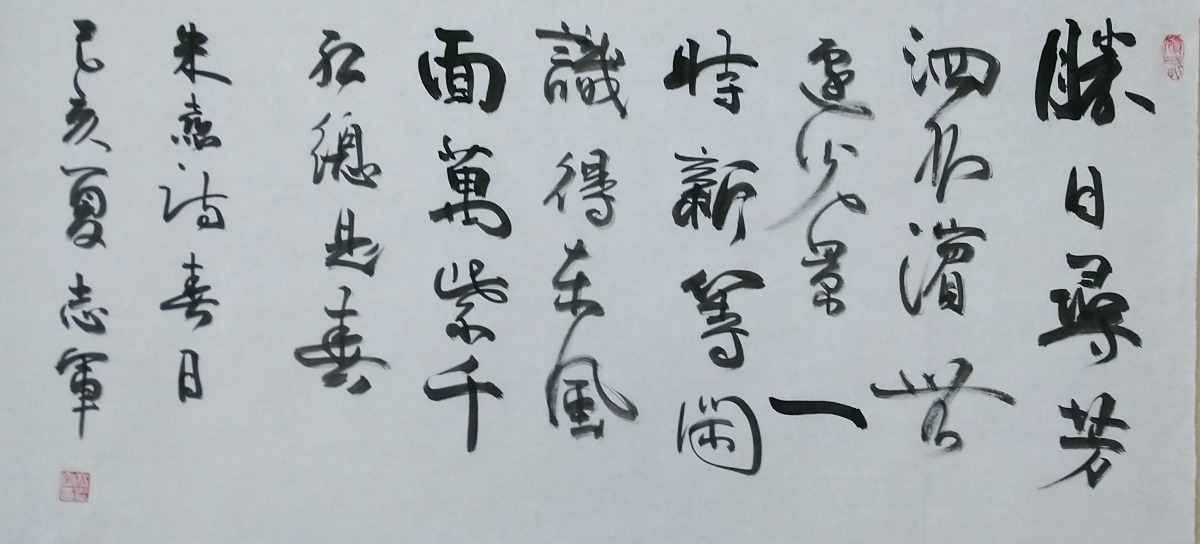 勝日尋芳
泗水濱無
邊光景一
時新等閑
識得東風
面萬紫千
紅總是春
朱熹詩春日
己亥夏志軍